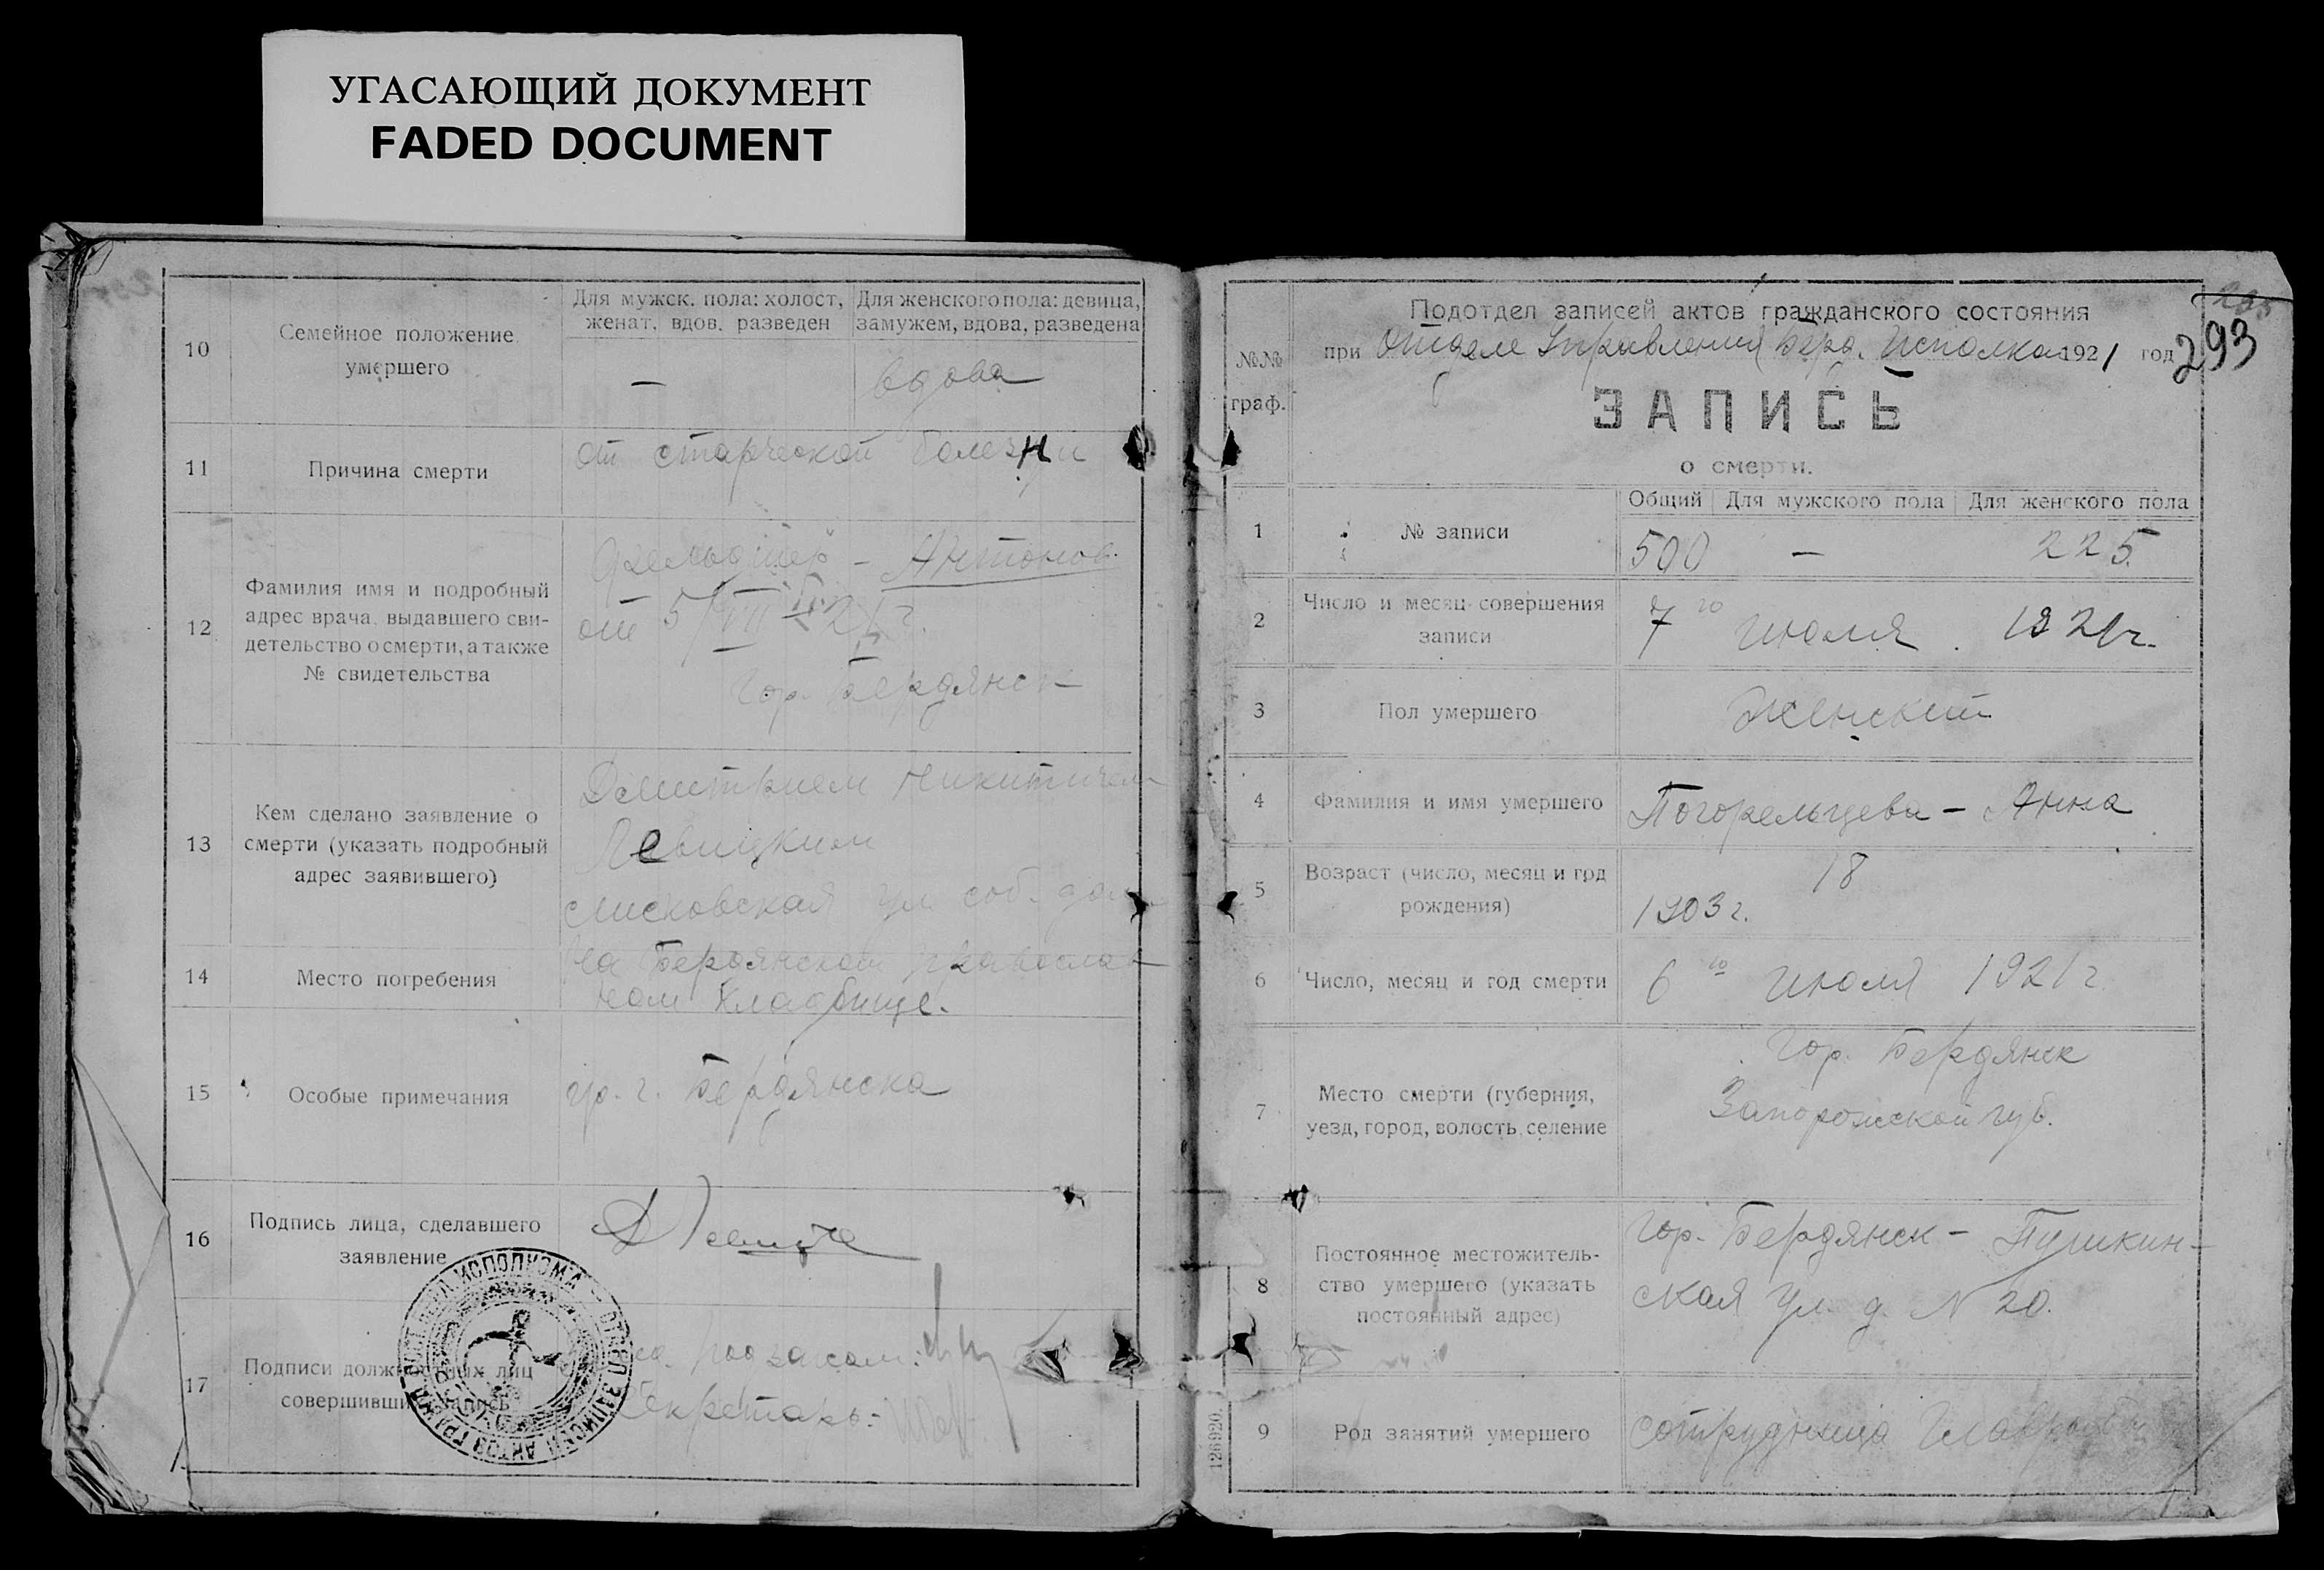 УГАСАЮЩИЙ ДОКУМЕНТ
FADED DOCUMENT
10
Семейное положение
умершего
Для мужск. пола: холост,
женат, вдов, разведен
Для женского пола: девица,
замужем, вдова, разведена
—
вдова
11
Причина смерти
от старческой болезни
12
Фамилия имя и подробный
адрес врача, выдавшего сви-
детельство о смерти, а также
№ свидетельства
Фельдшер – Антонов
от 5/VII 21г.
Гор. Бердянск
13
Кем сделано заявление о
смерти (указать подробный
адрес заявившего)
Дмитрием Никитичем
Левицким
ул. соб. дом
14
Место погребения
На Бердянском православ
ном кладбище.
15
Особые примечания
гр. г. Бердянска
16
Подпись лица, сделавшего
заявление
17
Подписи должностных лиц
совершивших запись
Секретарь:
293
№№
граф.
Подотдел записей актов гражданского состояния
при Отделе Управления Берд. Исполкома 1921 год
ЗАПИСЬ
о смерти.
1
№ записи
Общий
Для мужского пола
Для женского пола
500
—
225.
2
Число и месяц совершения
записи
7го июля. 1921г.
3
Пол умершего
Женский
4
Фамилия и имя умершего
Погорельцева – Анна
5
Возраст (число, месяц и год
рождения)
18
1903 г.
6
Число, месяц и год смерти
6го июля 1921 г
7
Место смерти (губерния,
уезд, город, волость, селение
Гор. Бердянск
Запорожской губ.
8
Постоянное местожитель-
ство умершего (указать
постоянный адрес)
Гор. Бердянск – Пушкин-
ская ул. д. N 20.
9
Род занятий умершего
сотрудница
126920.